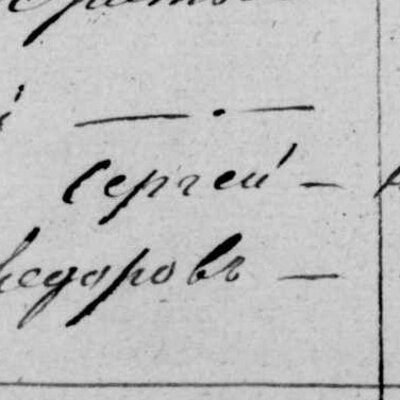 — . —
Сергей —
Федоровъ —